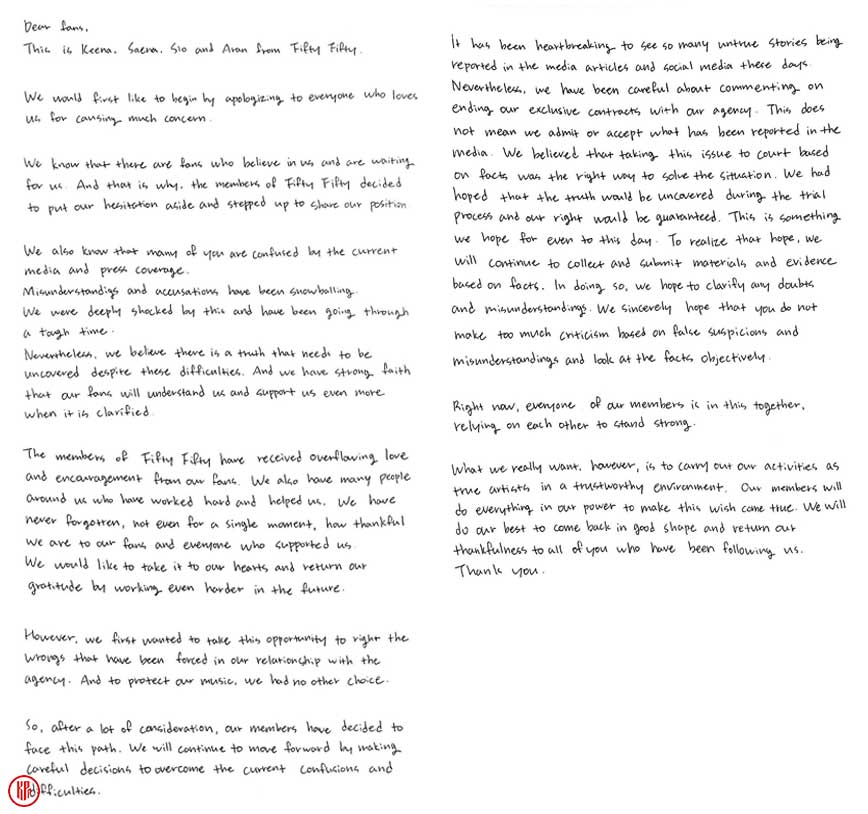 Dear fans.
This is Keena. Saena. Sio and Aran from Fifty Fifty.
We would first like to begin by apologizing to everyone who loves
us for causing much concern.
We know that there are fans who believe in us and are waiting
for us. And that is why, the members of Fifty Fifty decided
to put our hesitation aside and stepped up to share our position.
We also know that many of you are confused by the current
media and press coverage.
Misunderstandigs and accusations have been snowballing.
We were deeply shocked by this and have been going through
a tough time.
Nevertheless, we believe there is a truth that needs to be
uncovered despite these difficulties. And we have strong faith
that our fans will understand us and support us even more
when it is clarified.
The members of Fifty Fifty have received overflowing love
and encouragement from our fans. We also have many people
around us who have worked hard and helped us. We have
never forgotten, not even for a single moment, how thankful
we are to our fans and everyone who supported us.
We would like to take it to our hearts and return our
gratitude by working even harder in the future.
However, we first wanted to take this opportunity to right the
wrongs that have been forced in our relationship with the
agency. And to protect our music, we had no other choice.
So, after a lot of consideration, our members have decided to
face this path. We will continue to move forward by making
careful decisions to overcome the current confusions and
difficulties.
KP
It has been heartbreaking to see so many untrue stories being
reported in the media articles and social media these days.
Nevertheless, we have been careful about commenting on
ending our exclusive contracts with our agency. This does
not mean we admit or accept what has been reported in the
media. We believed that taking this issue to court based
on facts was the right way to solve the situation. We had
hoped that the truth would be uncovered during the trial
process and our right would be guaranteed. This is something
we hope for even to this day. To realize that hope, we
will continue to collect and submit materials and evidence
based on facts. In doing so, we hope to clarify any doubts
and misunderstandings. We sincerely hope that you do not
make too much criticism based on false suspicions and
misunderstandings and look at the facts objectively.
Right now, everyone of our members is in this together,
relying on each other to stand strong.
What we really want, however, is to carry out our activities as
true artists in a trustworthy environment. Our members will
do everything in our power to make this wish come true. We will
do our best to come back in good shape and return our
thankfulness to all of you who have been following us.
Thank you.